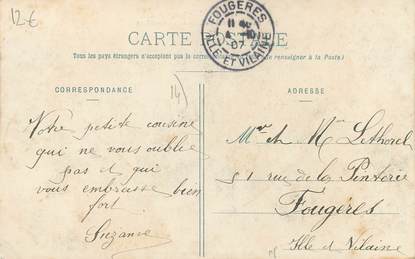 12€
FOUGÈRES
ILLE ET VILAINE
07
CARTE POSTALE
Tous les pays étrangers n'acceptent pas la correspondance au recto (Se renseigner à la Poste)
CORRESPONDANCE
ADRESSE
Votre petite cousine
qui ne vous oublie
pas et qui
vous embrasse bien
fort
Suzanne
51 rue de la Pinterie
Fougères
Ille et Vilaine